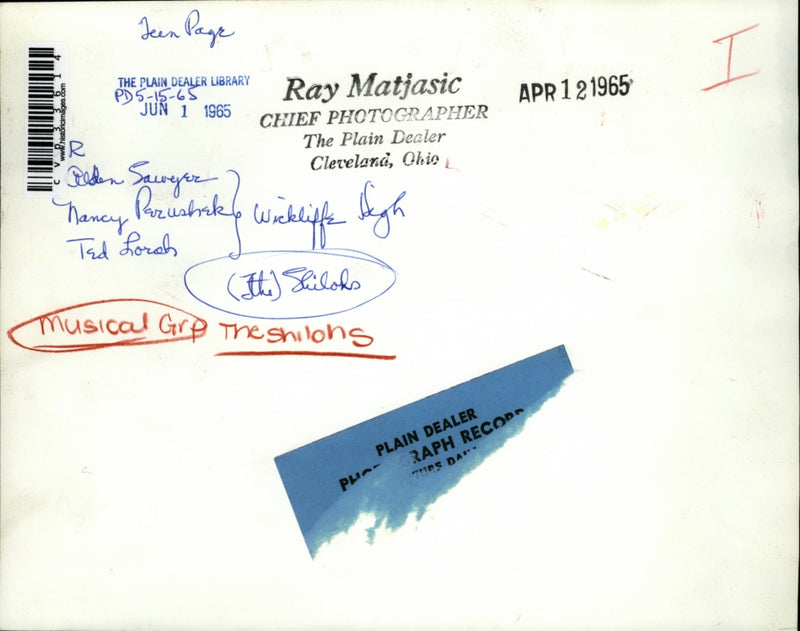 Teen Page
I
THE PLAIN DEALER LIBRARY
PD5-15-65
JUN 1 1965
Ray Matjasic
CHIEF PHOTOGRAPHER
The Plain Dealer
Cleveland, Ohio
APR 12 1965
CVD33614
www.historicimages.com
R
Alden Sawyer
Nancy Perushek
Ted Lorah
Wickliffe High
(The) Shilohs
Musical Grp The Shilohs
PLAIN DEALER
RAPH RECORD